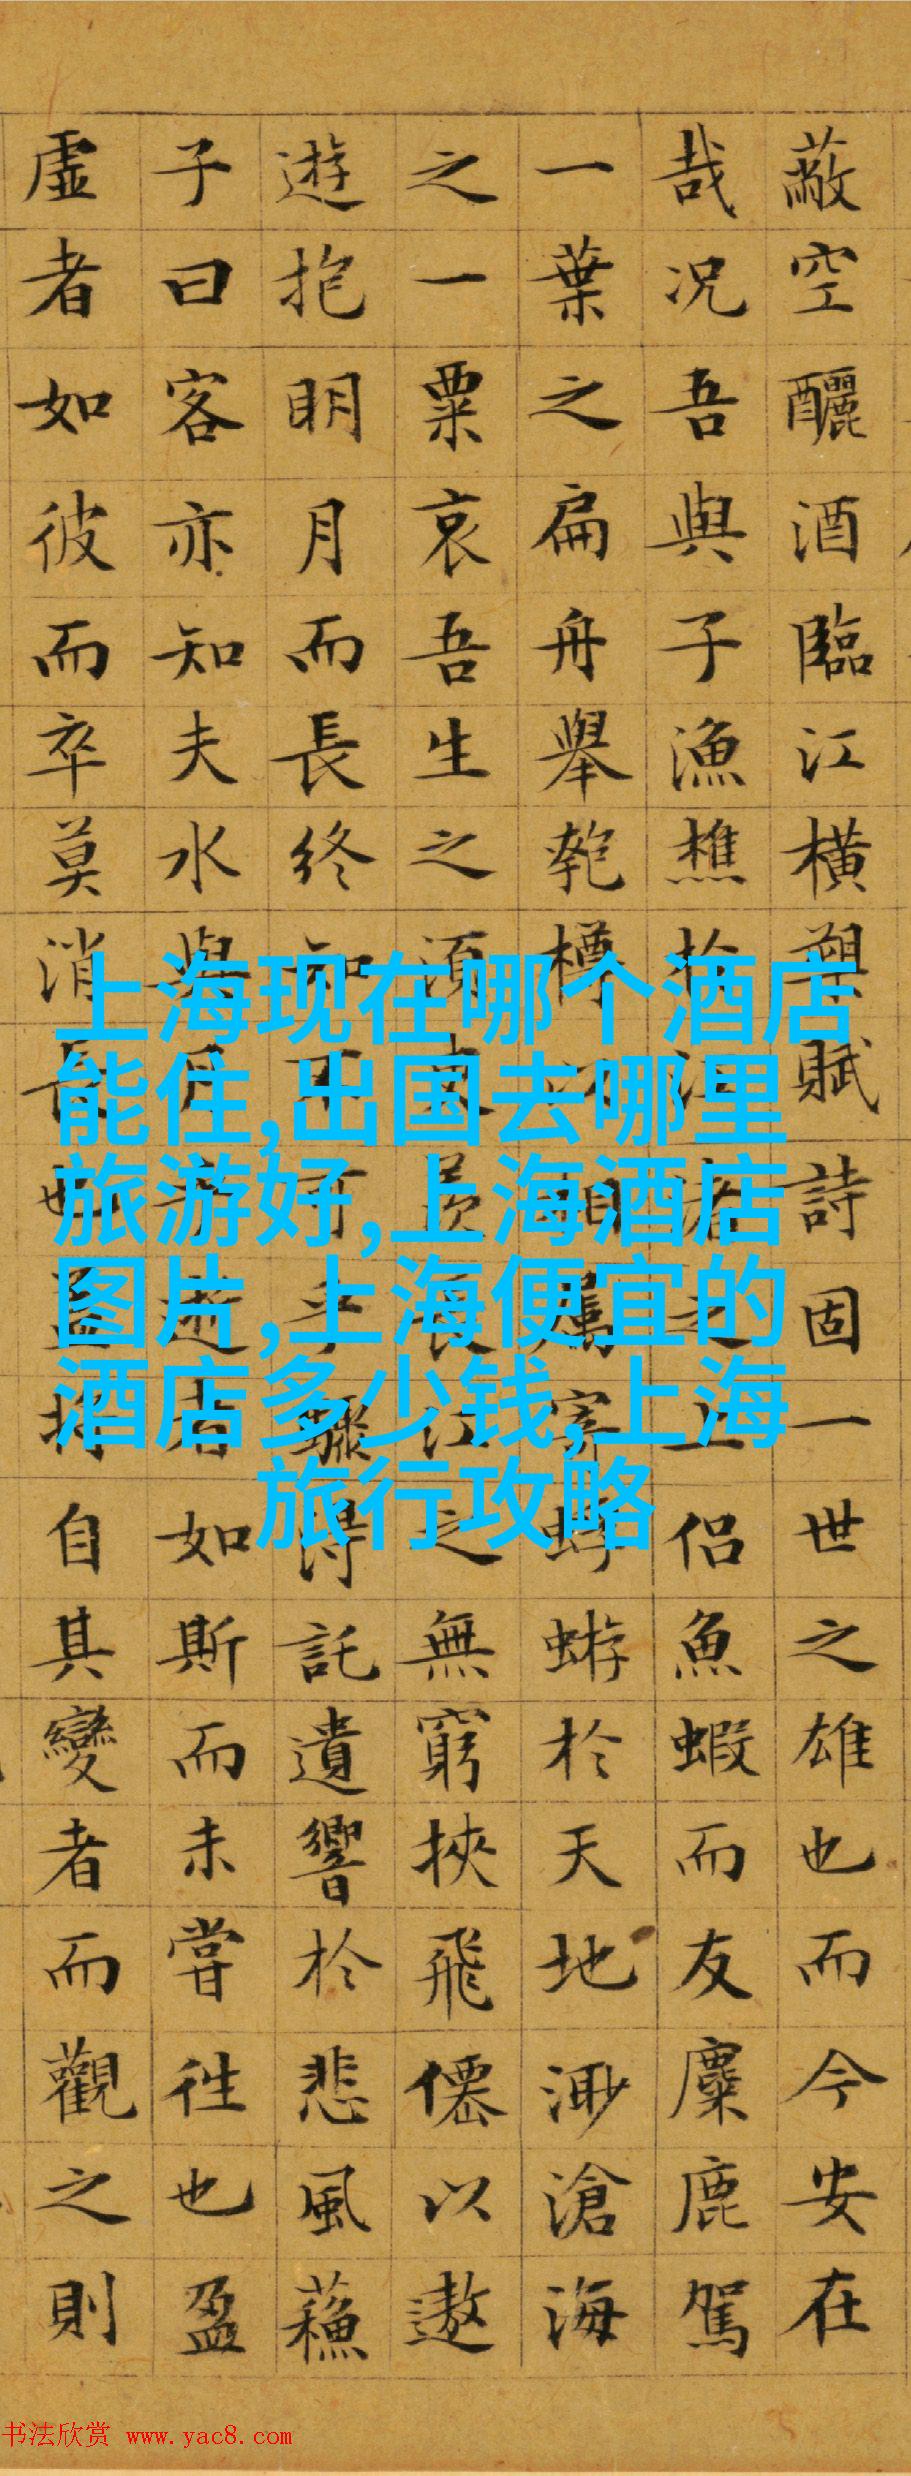 蔽空釃酒臨江橫槊賦詩固一世之雄也而今安在
哉况吾與子漁樵於江渚之上侶魚蝦而友麋鹿駕
一葉之扁舟舉匏樽以相屬寄蜉蝣於天地渺滄海
之一粟哀吾生之須臾羨長江之無窮挾飛僊以遨
遊抱明月而長終知不可乎驟得託遺響於悲風蘓
子曰客亦知夫水與月乎逝者如斯而未嘗往也盈
虛者如彼而卒莫消長也盖將自其變者而觀之則
上海现在哪个酒店
能住,出国去哪里
旅游好,上海酒店
图片,上海便宜的
酒店多少钱,上海
旅行攻略
书法欣赏 www.yac8.com